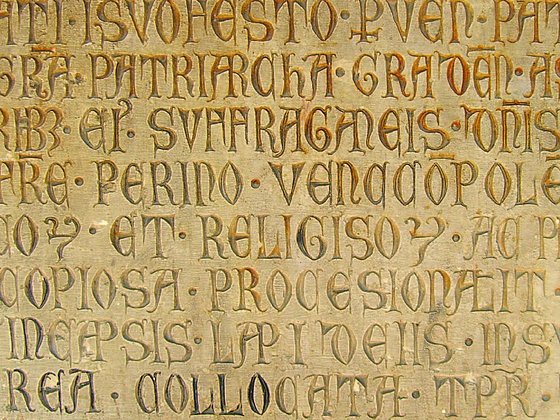 ATI · ISVO FESTO · P VEN · PAT
GRĀ · PATRIARChA · GRADEN̄ · AS
RIB3 · EI · SVFFRAGANEIS · VN̄IS
AR̄E · PERINO · VENCCŌPOLE
CO · ET · RELIGISO · AC P
COPIOSA · PROCESIONALIT
INEAPSIS LAPIDEIIS · INSV
REA · COLLOCATA · TPR̄ ·